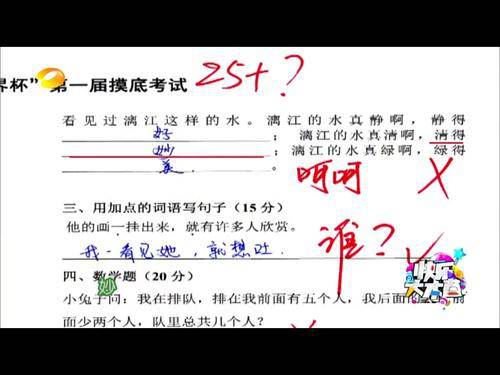 界杯”第一届摸底考试 25+?
看见过漓江这样的水。漓江的水真静啊，静得
好；漓江的水真清啊，清得
妙；漓江的水真绿啊，绿得
美。
呵呵
三、用加点的词语写句子（15 分）
他的画一挂出来，就有许多人欣赏。
我一看见她，就想吐
谁？
四、数学题（20 分）
小兔子问：我在排队，排在我前面有五个人，我后面的
面少两个人，队里总共几个人？
快乐大本营